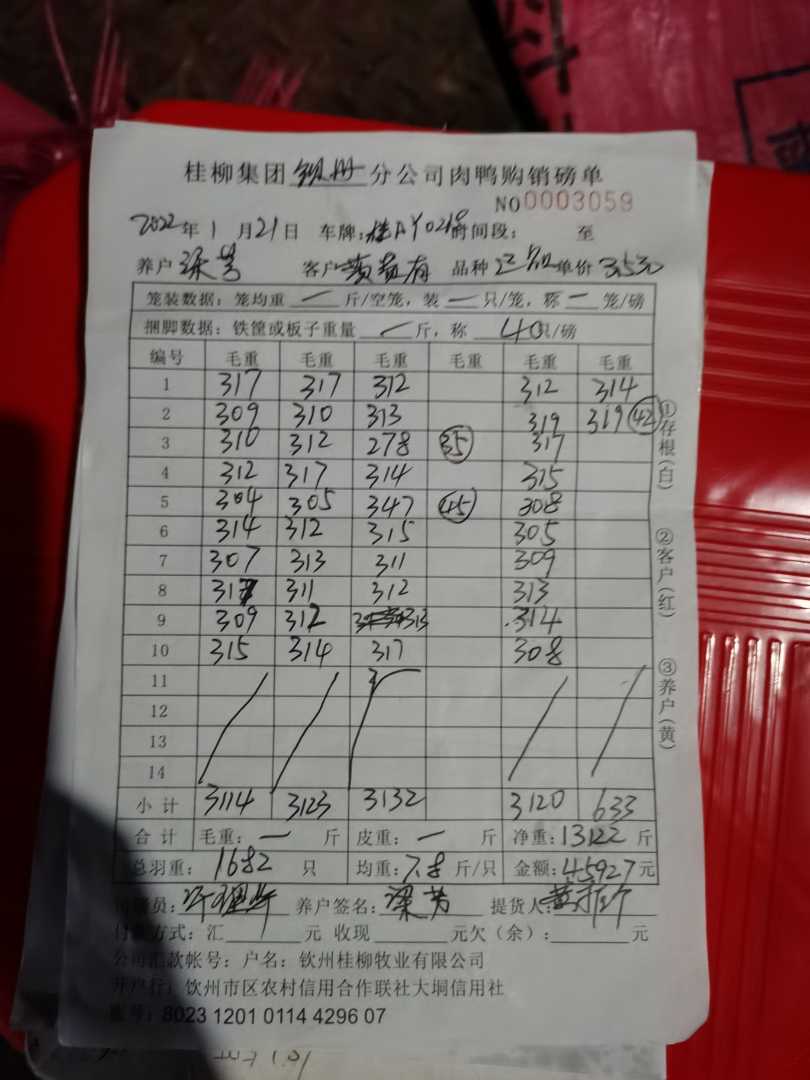 桂柳集团 钦州 分公司肉鸭购销磅单
NO 0003059
2022年 1 月 21日 车牌: 桂AY0218 时间段: 至
养户 梁芳 客户 黄 有 品种 单价
笼装数据: 笼均重 一 斤/空笼, 装 一 只/笼, 称 一 笼/磅
捆脚数据: 铁筐或板子重量 一 斤, 称 40只/磅
编号 毛重 毛重 毛重 毛重 毛重 毛重
1 317 317 312 312 314
2 309 310 313 319 319 42
3 310 312 278 35 317
4 312 317 314 315
5 304 305 347 45 308
6 314 312 315 305
7 307 313 311 309
8 317 311 312 313
9 309 312 313 314
10 315 314 317 308
11
12
13
14
小计 3114 3123 3132 3120 633
合计 毛重: 一 斤 皮重: 一 斤 净重: 13122 斤
总羽重: 1682 只 均重: 7.8 斤/只 金额: 45927元
员: 养户签名: 梁芳 提货人:
付款方式: 汇 元 收现 元欠(余): 元
公司汇款帐号: 户名: 钦州桂柳牧业有限公司
开户行: 钦州市区农村信用合作联社大垌信用社
账号: 8023 1201 0114 4296 07
①存根(白)
②客户(红)
③养户(黄)